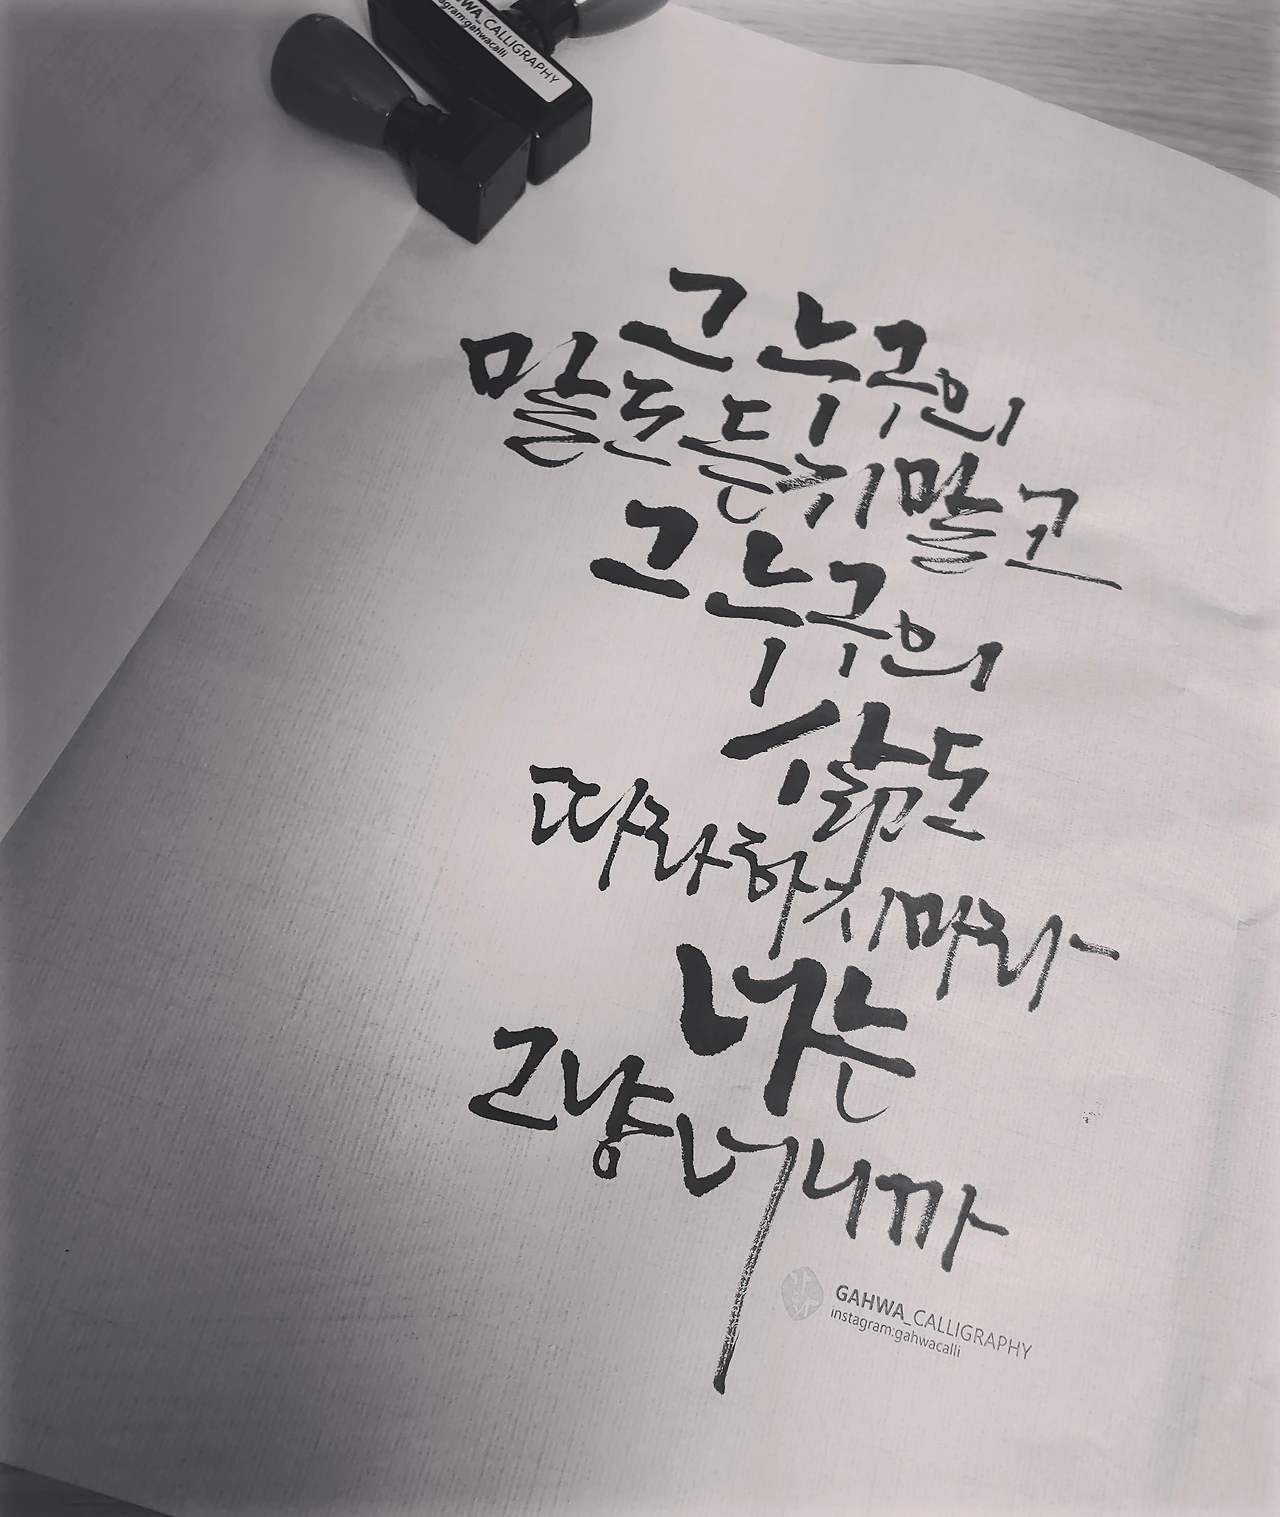 WA_CALLIGRAPHY
agram:gahwacalli
그 누구의
말도 듣지 말고
그 누구의
삶도
따라하지 마라
너는
그냥 너니까
GAHWA_CALLIGRAPHY
instagram:gahwacalli